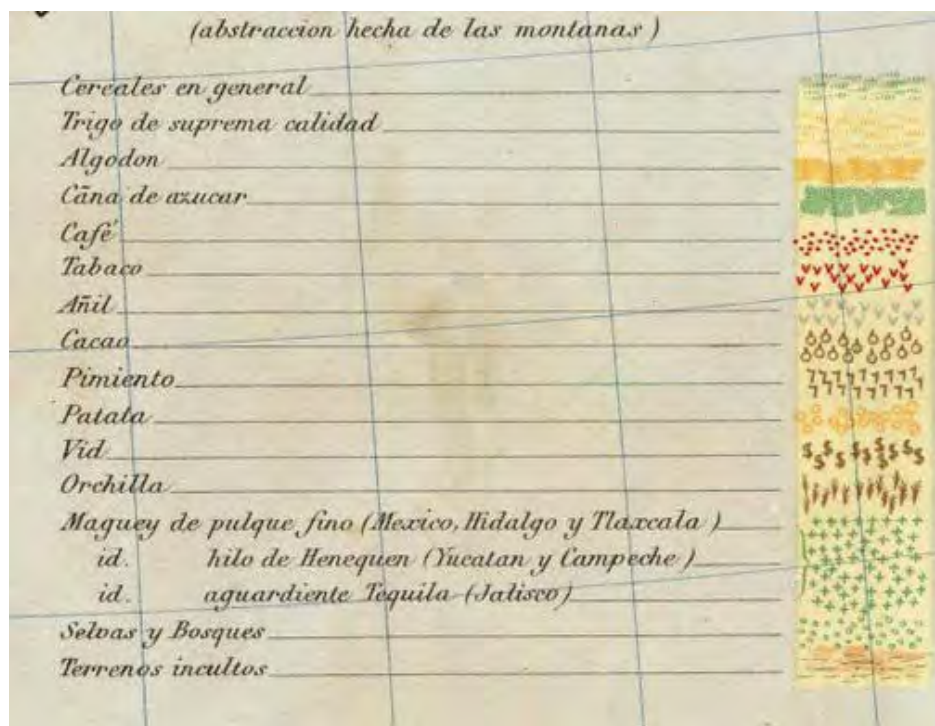 (abstraccion hecha de las montanas)
Cereales en general
Trigo de suprema calidad
Algodon
Cãna de azucar
Café
Tabaco
Añil
Cacao
Pimiento
Patata
Vid
Orchilla
Maguey de pulque fino (Mexico, Hidalgo y Tlaxcala)
id. hilo de Henequen (Yucatan y Campeche)
id. aguardiente Tequila (Jalisco)
Selvas y Bosques
Terrenos incultos